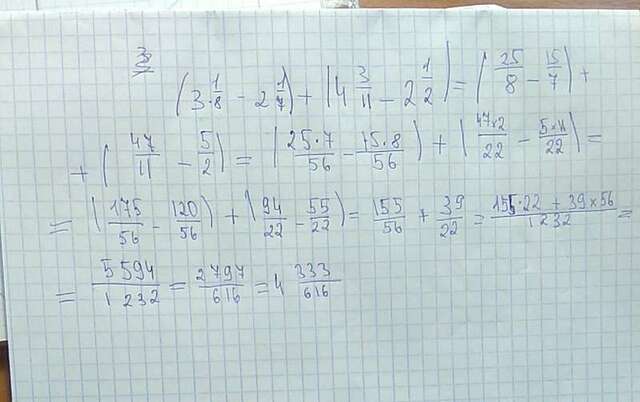 3
(3 1/8 - 2 1/7) + (4 3/11 - 2 1/2) = (25/8 - 15/7) +
+ (47/11 - 5/2) = (25·7/56 - 15·8/56) + (47×2/22 - 5×11/22) =
= (175/56 - 120/56) + (94/22 - 55/22) = 155/56 + 39/22 = 155·22 + 39×56/1232 =
= 5594/1232 = 2797/616 = 4 333/616